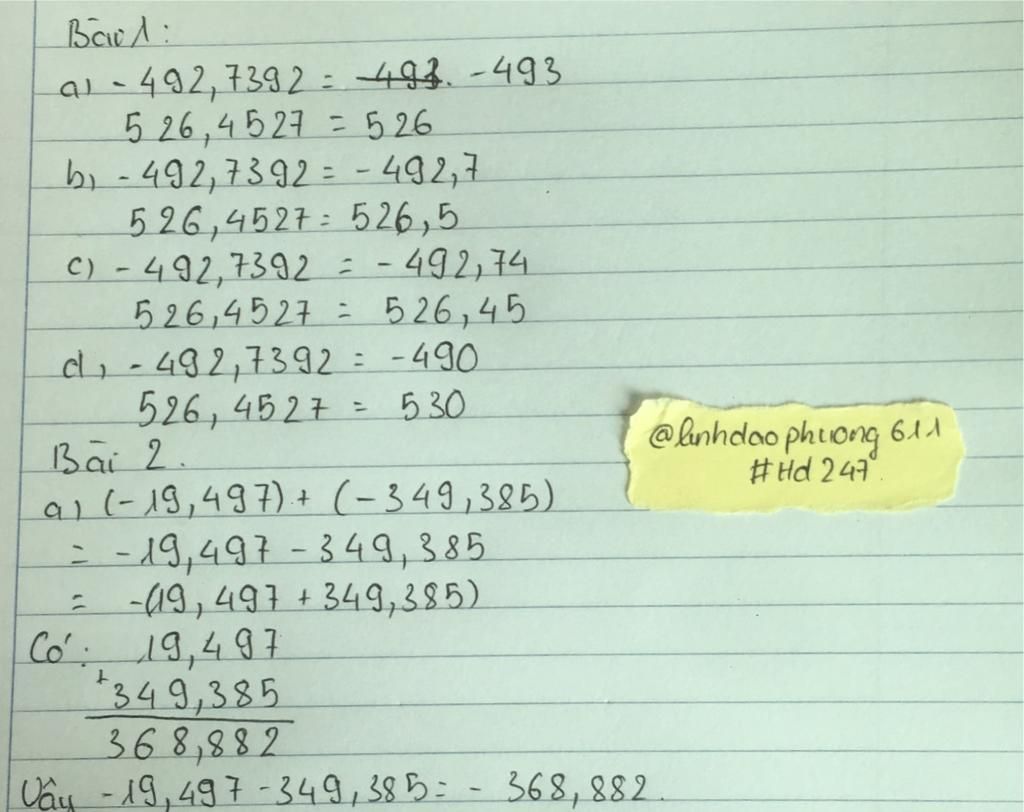 Bài 1:
a) - 492,7392 = -493
526,4527 = 526
b) - 492,7392 = - 492,7
526,4527 = 526,5
c) - 492,7392 = - 492,74
526,4527 = 526,45
d) - 492,7392 = -490
526,4527 = 530
Bài 2.
@linhdaophuong611
#Hd247
a) (-19,497) + (-349,385)
= -19,497 - 349,385
= -(19,497 + 349,385)
Có: 19,497
+ 349,385
368,882
Vậy -19,497 - 349,385 = - 368,882.